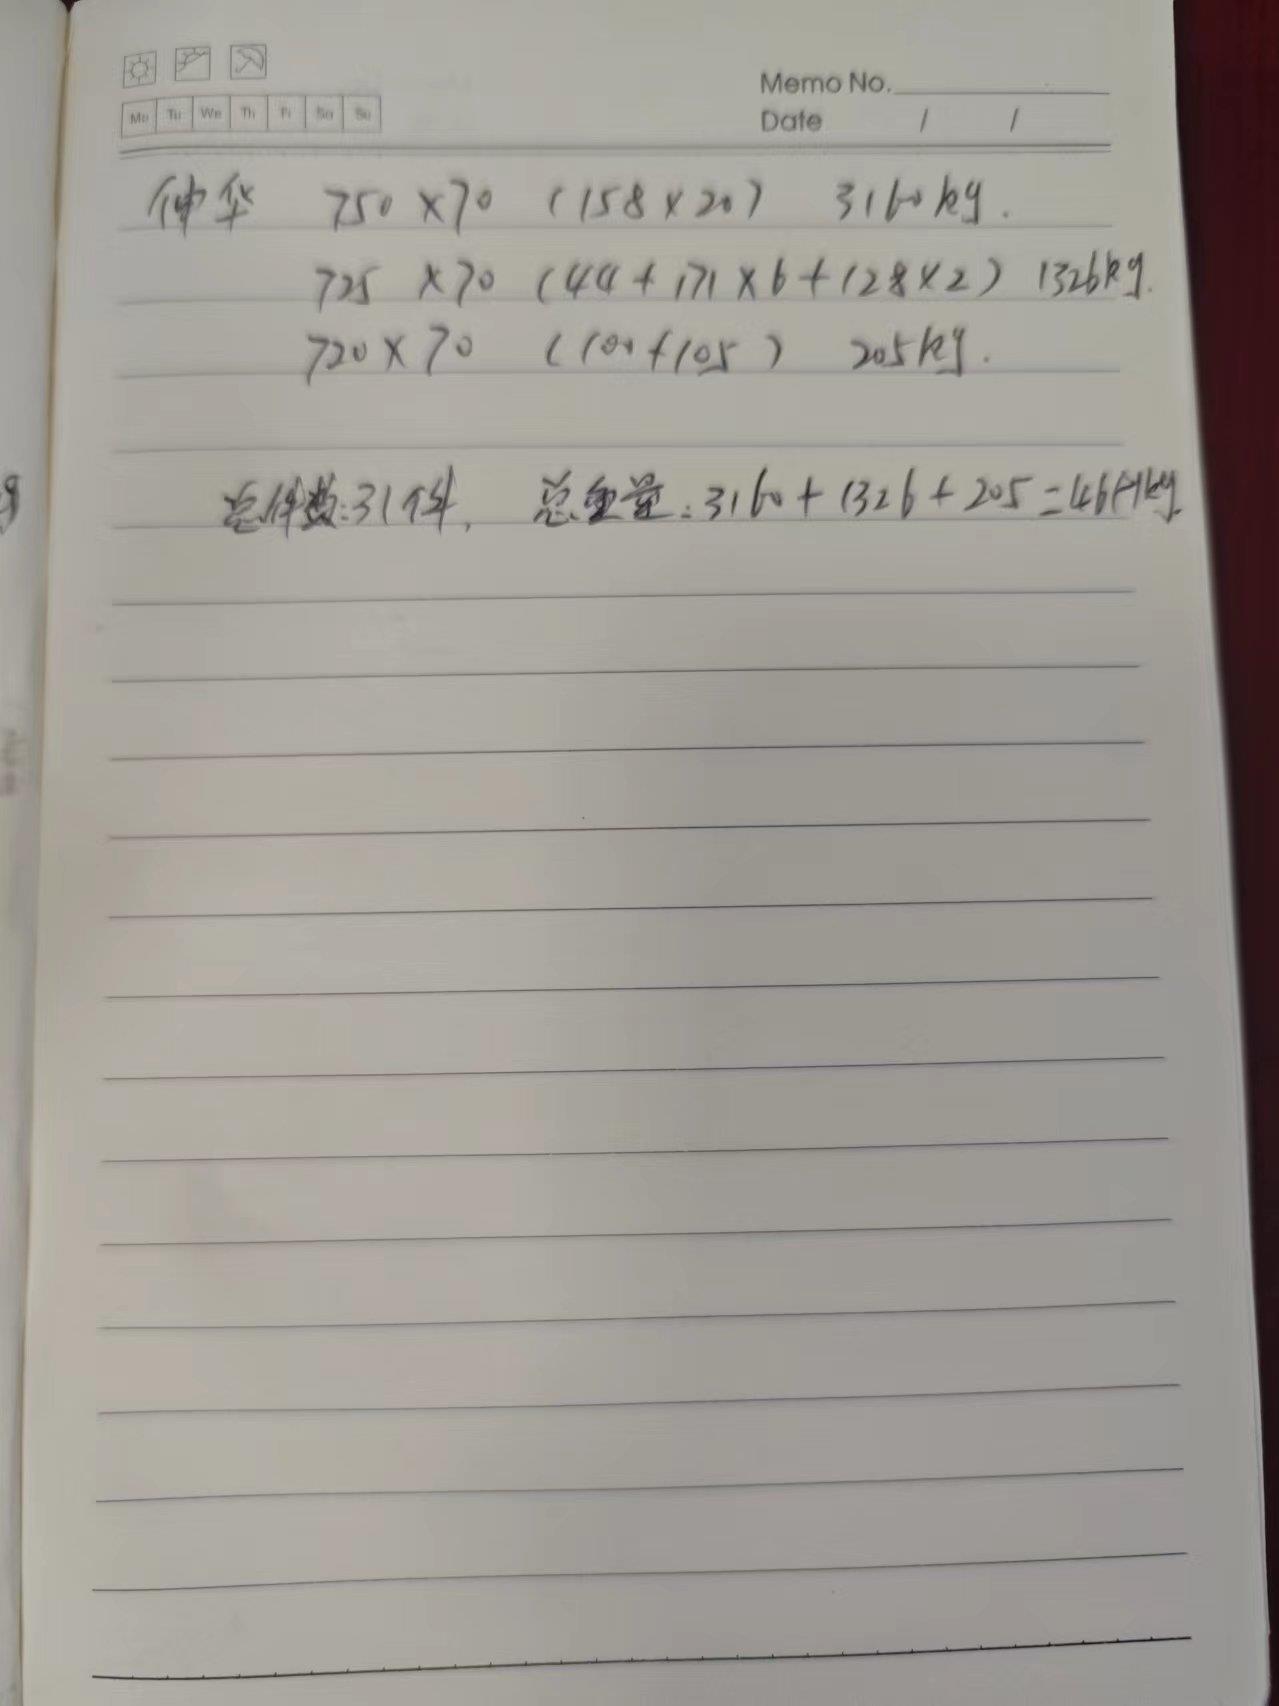 Memo No.
Mo Tu We Th Fr Sa Su
Date / /
仲华 750×70 (158×20) 3160kg.
725×70 (44+171×6+128×2) 1326kg.
720×70 (100+105) 205kg.
总件数:31件, 总重量:3160+1326+205=4691kg